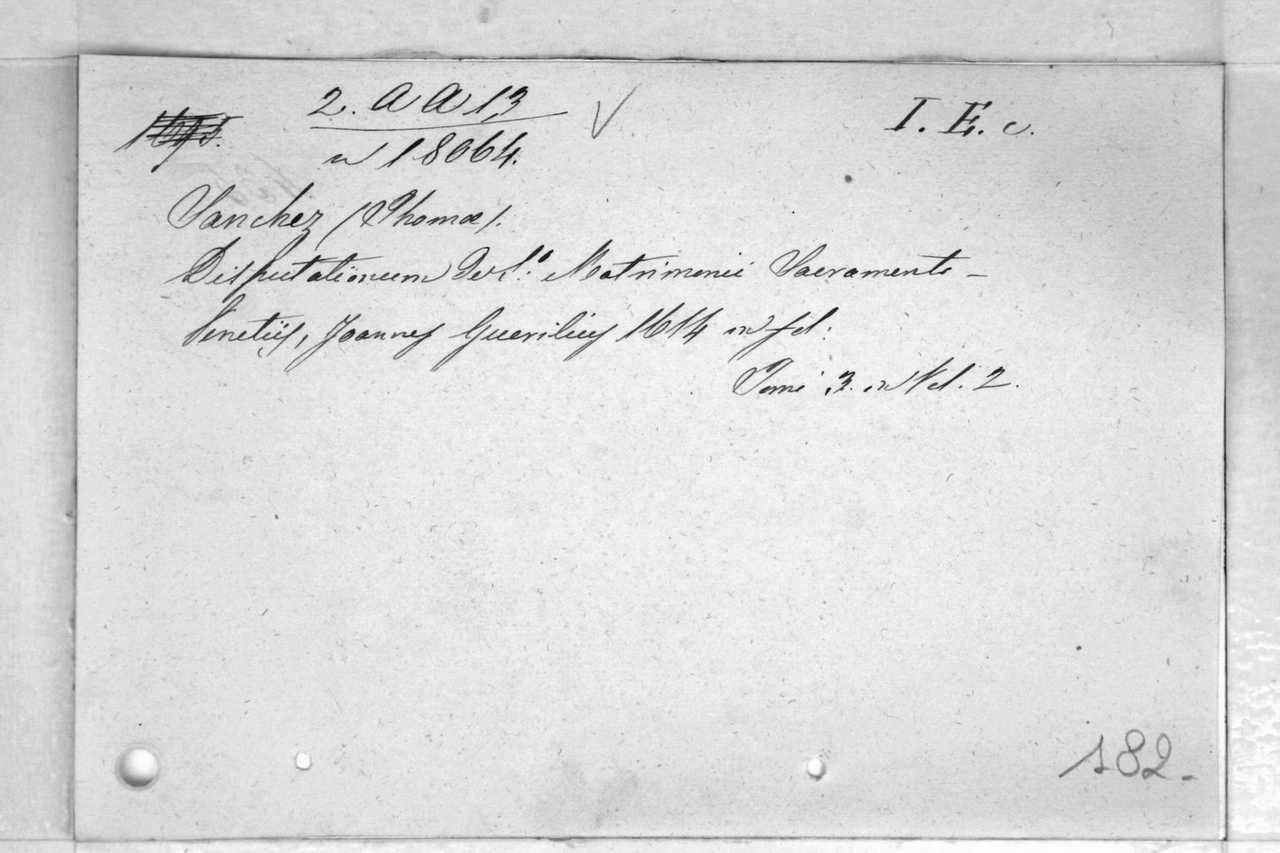 2. A A 13 I. E. c.
n 18064.
Sanchez (Thomæ).
Disputationum De S.º Matrimonii Sacramento -
Venetiis, Joannes Guerilius 1614 in fol:
Tomi 3. in Vol. 2.
182.